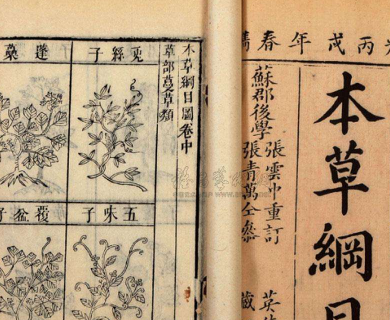 丙戌年春
本草綱目
蘇郡後學
張雲中重訂
張青萬仝參
本草綱目圖卷中
草部蔓草類
菟絲子
蓬蘽
五味子
覆盆子